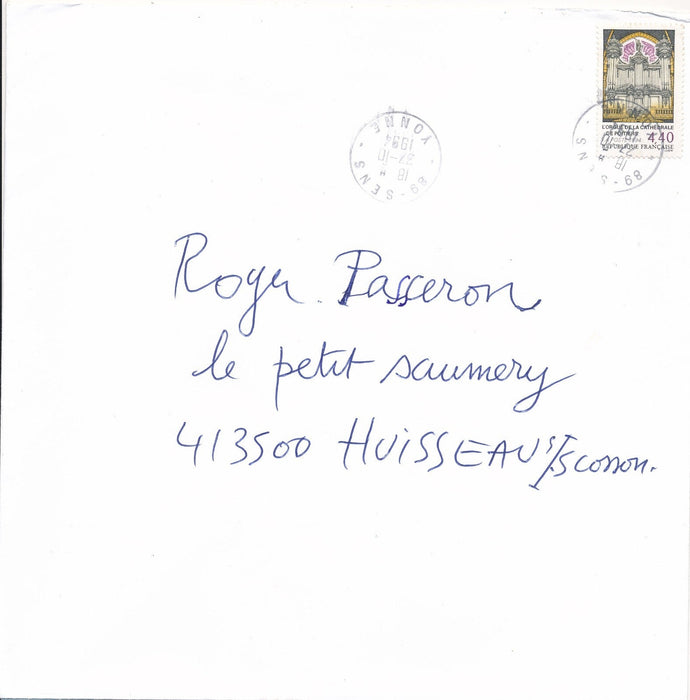 L'ORGUE DE LA CATHÉDRALE
DE POITIERS
4,40
RÉPUBLIQUE FRANÇAISE
89 - SENS - YONNE
18 H
27-10
1994
89 - SENS
18 H
Roger Passeron
le petit saumery
413500 HUISSEAU s/Scosson.